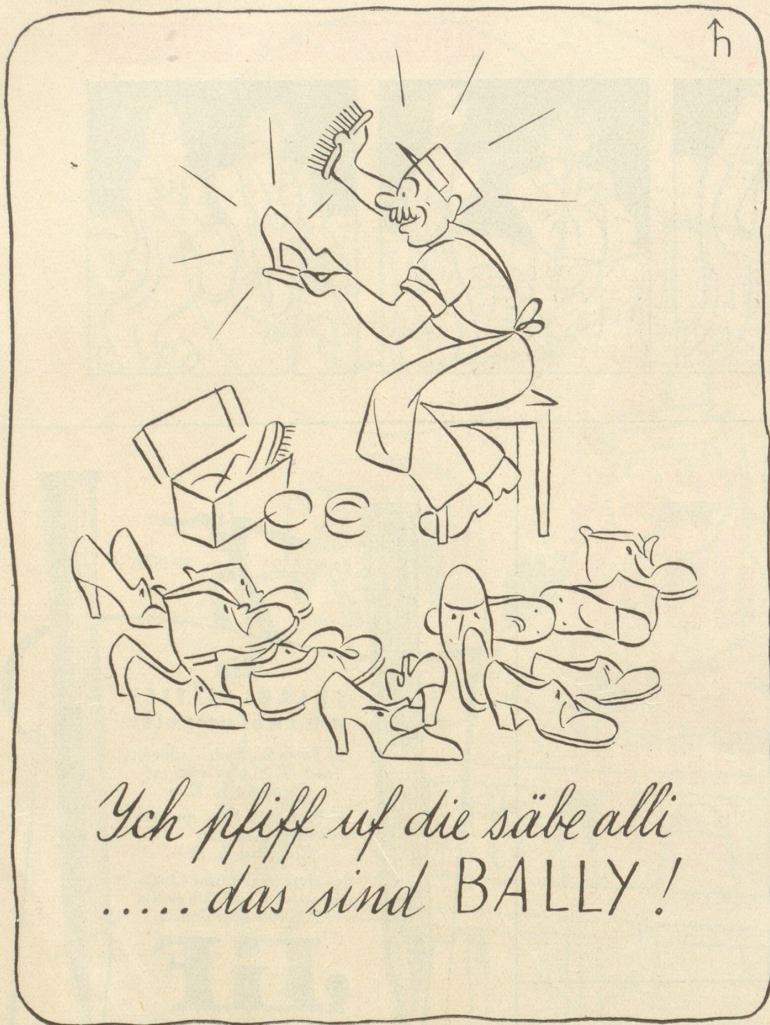 Ych pfiff uf die säbe alli
..... das sind BALLY!